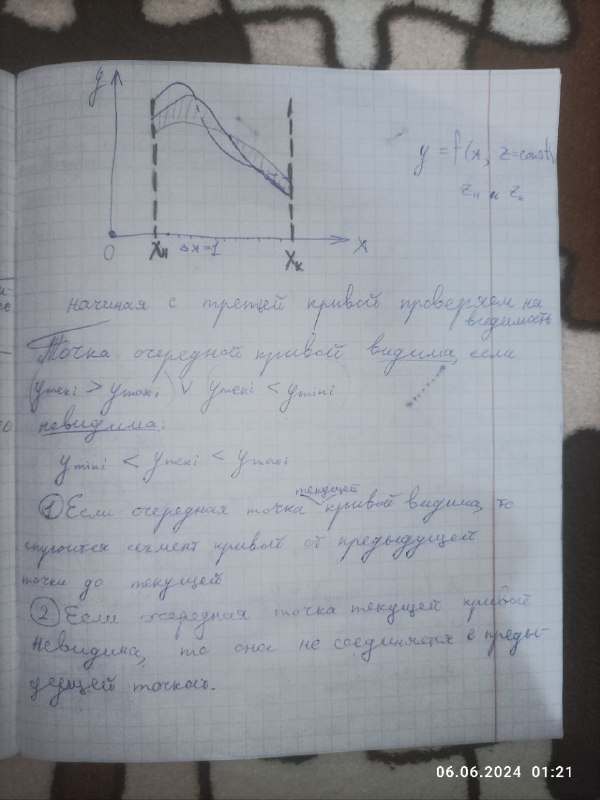 y
y = f(x, z=const)
zн и zк
0
xн
Δx=1
xк
x
начиная с третьей кривой проверяем на
видимость
Точка очередной кривой видима, если
(yтекi > yмахi) v (yтекi < ymini)
невидима:
ymini < yтекi < yмахi
текущей
① Если очередная точка кривой видима, то
строится сегмент кривой от предыдущей
точки до текущей
② Если очередная точка текущей кривой
невидима, то она не соединяется с преды-
дущей точкой.
06.06.2024 01:21